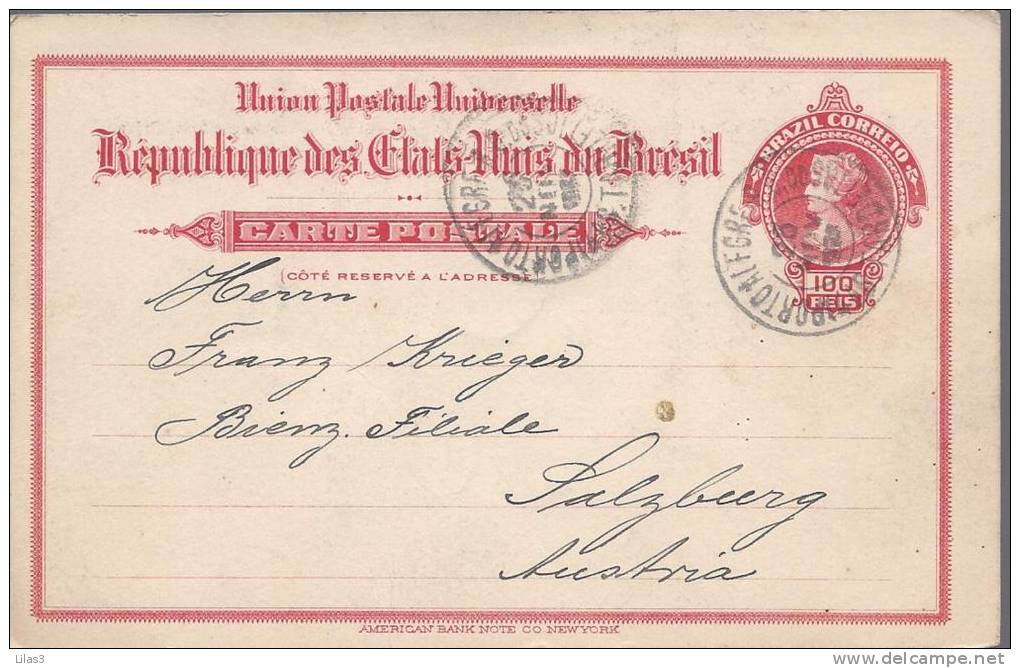 Union Postale Universelle
BRAZIL CORREIO
République des Etats-Unis du Brésil
CARTE POSTALE
(CÔTÉ RESERVÉ A L'ADRESSE)
100
REIS
PORTO ALEGRE
PORTO ALEGRE
Herrn
Franz Krieger
Bienz. Filiale
Salzburg
Austria
AMERICAN BANK NOTE CO NEW YORK
Lilas3
www.delcampe.net